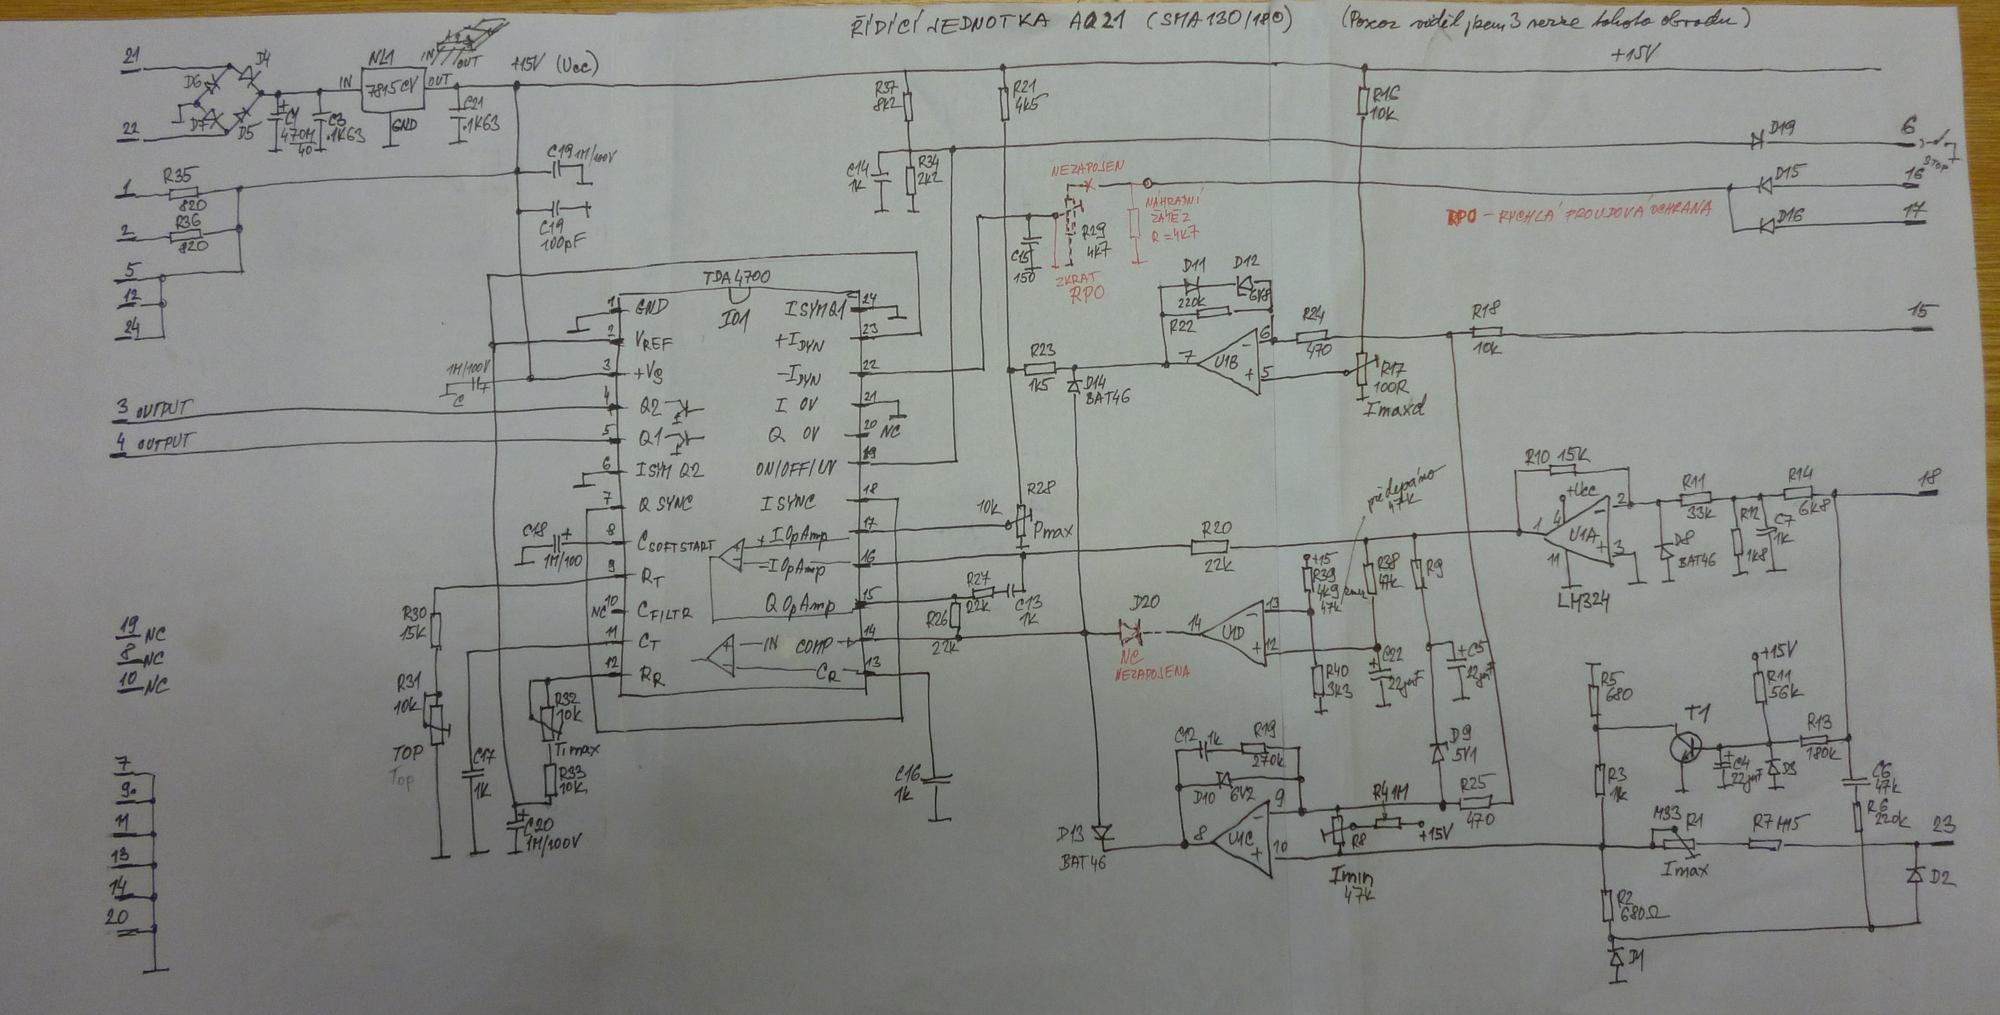 ŘÍDÍCÍ JEDNOTKA AQ21 (SMA130/180)
+15V
21
22
D4
D6
D7
D5
NL1
IN
7815CV
OUT
GND
IN
OUT
+15V (Ucc)
C1
470M
40
C3
.1K63
C21
.1K63
1
R35
820
2
R36
820
5
12
24
C19 1M/100V
C19
100pF
R37
8k2
R21
4k5
C14
1k
R34
2k2
R16
10k
D19
6
STOP
D15
16
D16
17
NEZAPOJEN
NÁHRADNÍ
ZÁTĚŽ
R=4K7
R29
4K7
C15
150
ZKRAT
RPO
RPO - RYCHLÁ PROUDOVÁ OCHRANA
TDA4700
IO1
1 GND
2 VREF
3 +VS
4 Q2
5 Q1
6 ISYM Q2
7 Q SYNC
8 CSOFTSTART
9 RT
NC 10 CFILTR
11 CT
12 RR
ISYMQ1 24
+IDYN 23
-IDYN 22
I OV 21
Q OV 20
NC
ON/OFF/UV 19
I SYNC 18
+IOpAmp 17
-IOpAmp 16
Q OpAmp 15
IN COMP 14
CR 13
1M/100V
C
3 OUTPUT
4 OUTPUT
C18
1M/100
R30
15k
R31
10k
TOP
Top
C17
1k
R32
10k
Timax
R33
10k
C20
1M/100V
C16
1k
19 NC
8 NC
10 NC
7
9
11
13
14
20
D11
D12
6V8
220k
R22
U1B
7
6
5
R24
470
R18
10k
15
R17
100R
Imaxd
R23
1k5
D14
BAT46
R28
10k
Pmax
R27
22k
C13
1k
R26
22k
R20
22k
D20
NC
NEZAPOJENA
14
U1D
13
12
+15
R39
4k9
47k
předepsáno
47k
R38
47k
R9
R40
3k3
C22
22µF
C5
22µF
D9
5V1
R25
470
C12
1k
R19
270k
D10
6V2
U1C
8
9
10
D13
BAT46
R41M
R8
+15V
Imin
47k
R10 15k
+Ucc
4
U1A
1
2
3
11
LM324
D8
BAT46
R11
33k
R12
1k8
C7
1k
R14
6k8
18
R5
680
T1
+15V
R11
56k
R13
180k
C4
22µF
D3
R3
1k
C6
47k
R6
220k
M33
R1
Imax
R7 M15
23
D2
R2
680Ω
D1